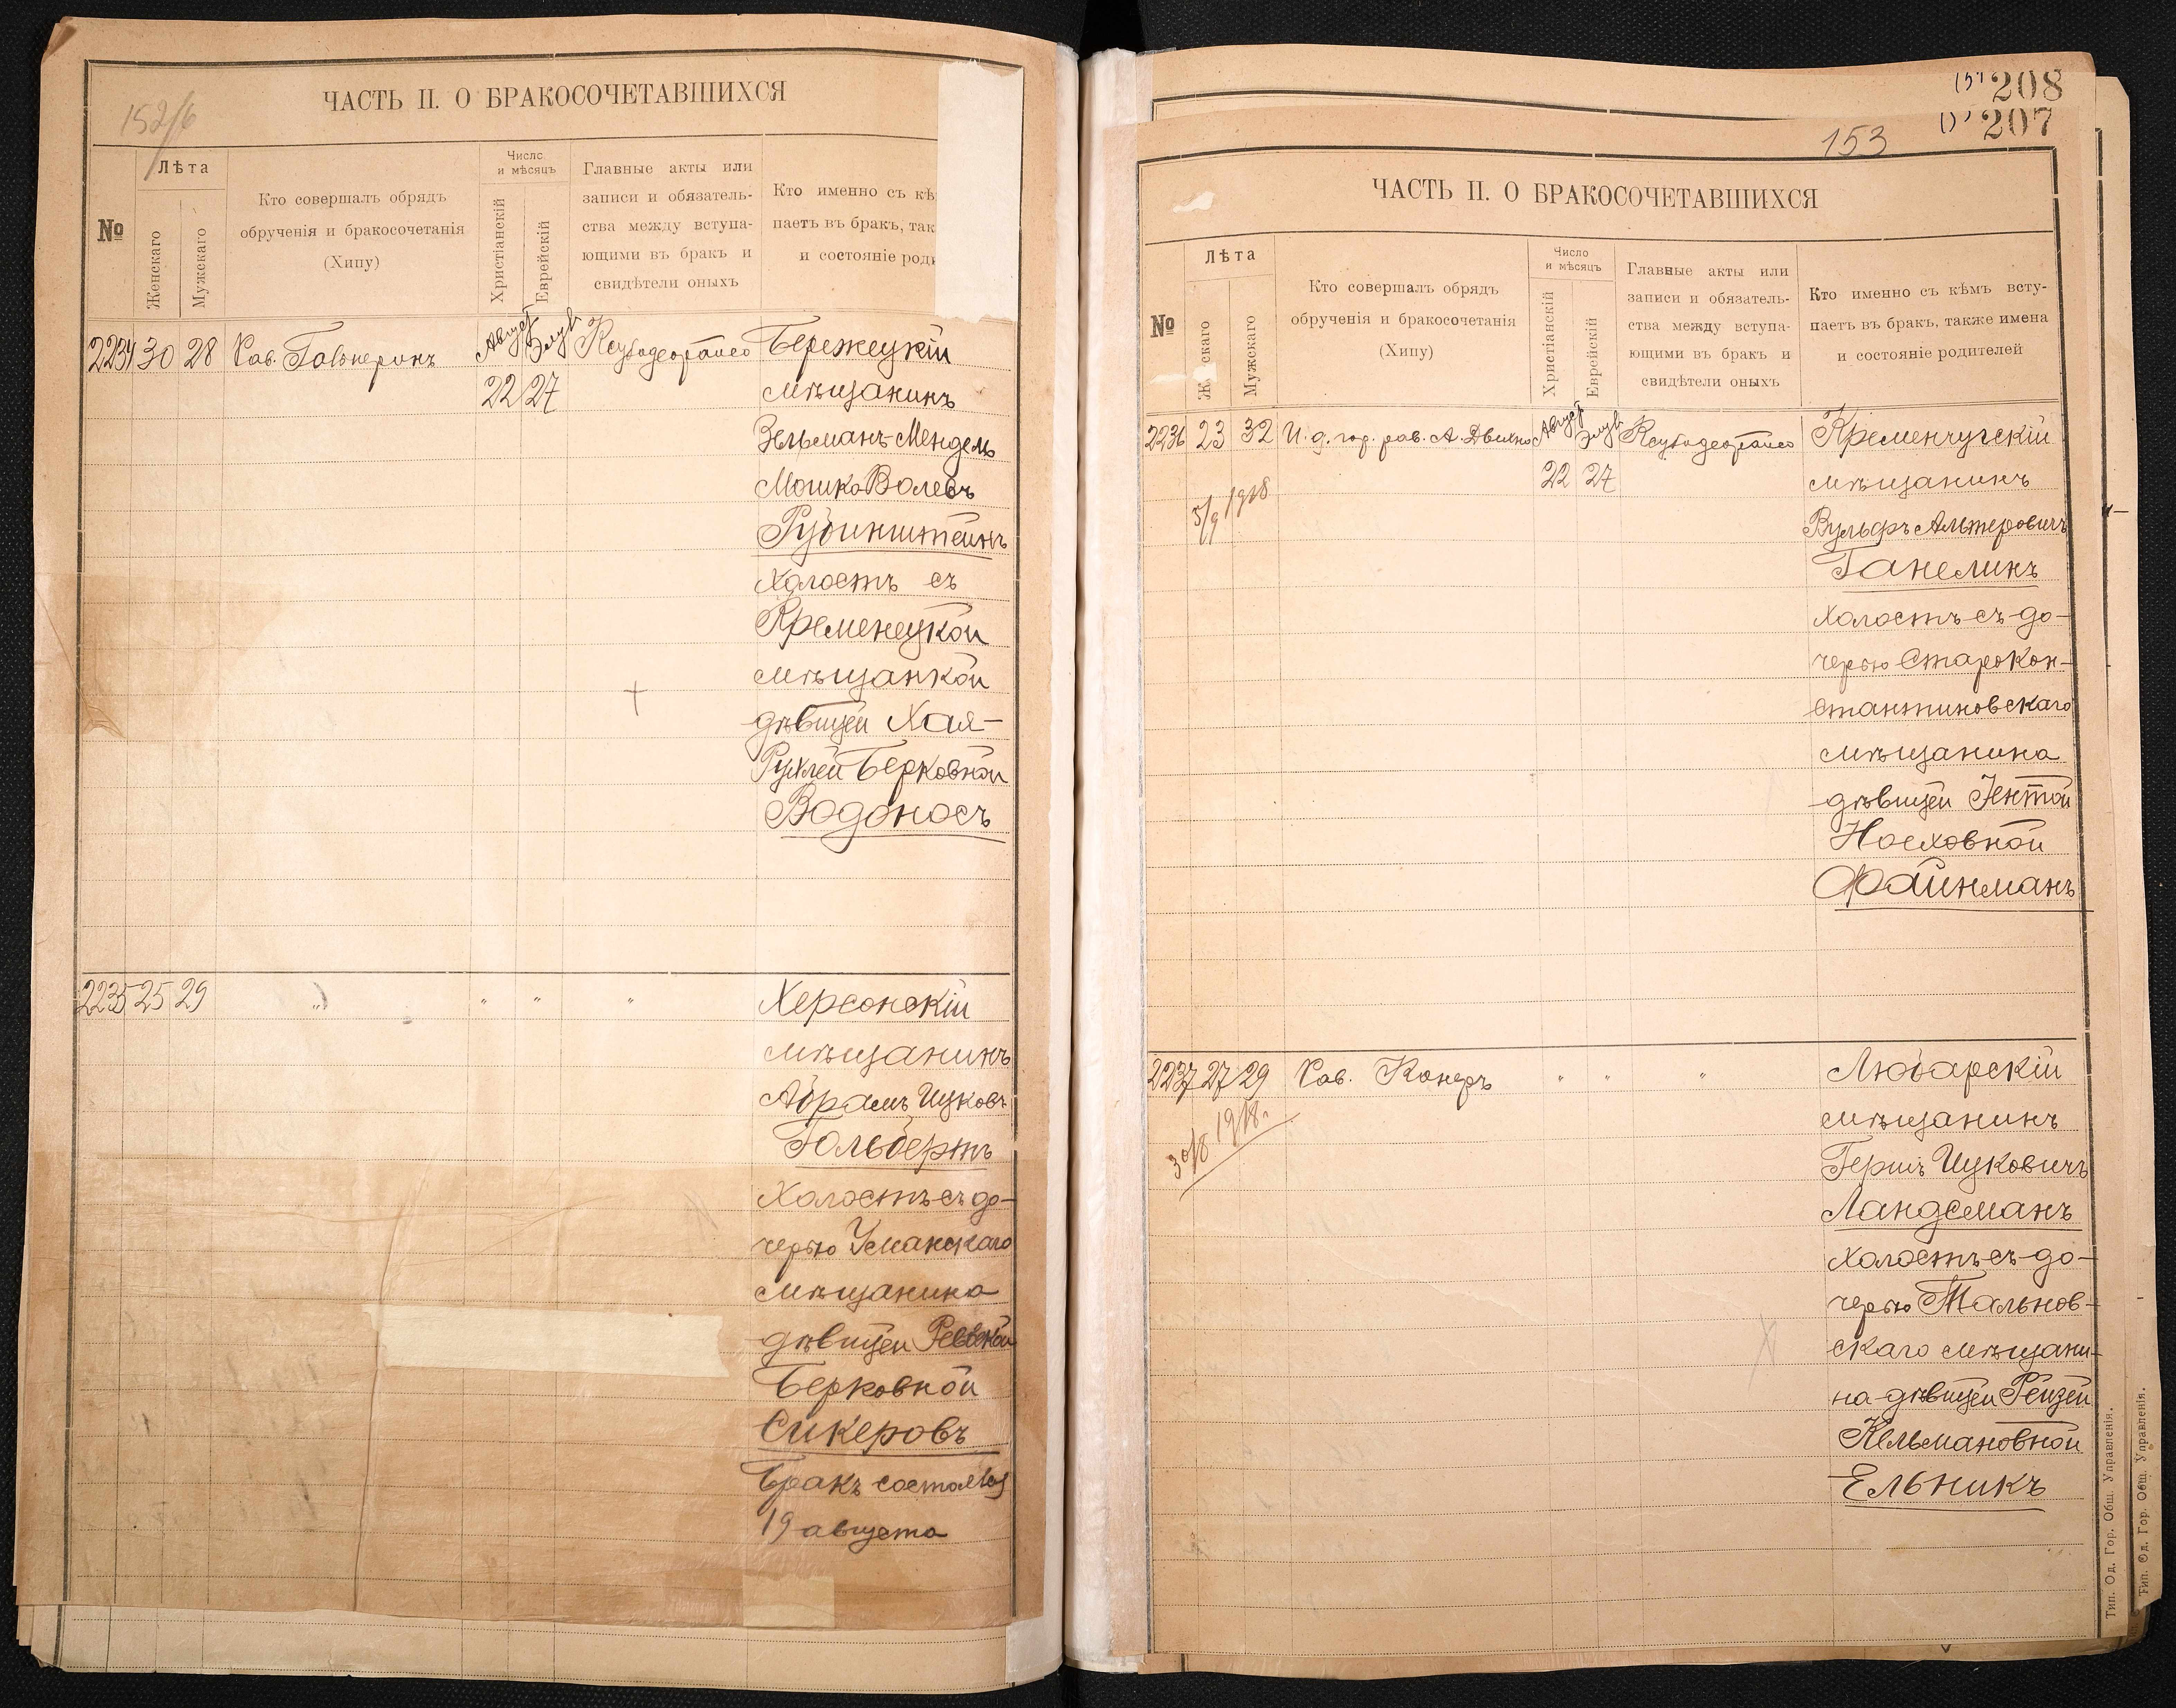 152/6
ЧАСТЬ II. О БРАКОСОЧЕТАВШИХСЯ
№
Лѣта
Женскаго
Мужскаго
Кто совершалъ обрядъ
обрученія и бракосочетанія
(Хипу)
Число
и мѣсяцъ
Христіанскій
Еврейскій
Главные акты или
записи и обязатель-
ства между вступа-
ющими въ бракъ и
свидѣтели оныхъ
Кто именно съ кѣ
паетъ въ бракъ, так
и состояніе род
2234 30 28 Рав. Август Элулъ Бережецкій
22 27 мѣщанинъ
Зельманъ-Мендель
Мошко Волевъ
Рубинштейнъ
холостъ съ
Кременецкой
мѣщанкой
дѣвицей Хая-
Рухлей Берковной
Водоносъ
2235 25 29 " " " " Херсонскій
мѣщанинъ
Абрамъ Ицковъ
Гольбертъ
Холостъ съ до-
черью Уманскаго
мѣщанина
дѣвицей
Берковной
Сикеровъ
Бракъ состоялся
19 августа
208
207
153
ЧАСТЬ II. О БРАКОСОЧЕТАВШИХСЯ
№
Лѣта
Ж скаго
Мужскаго
Кто совершалъ обрядъ
обрученія и бракосочетанія
(Хипу)
Число
и мѣсяцъ
Христіанскій
Еврейскій
Главные акты или
записи и обязатель-
ства между вступа-
ющими въ бракъ и
свидѣтели оныхъ
Кто именно съ кѣмъ всту-
паетъ въ бракъ, также имена
и состояніе родителей
2236 23 32 И. д. гор. рав. А. Август Элулъ Кременчугскій
5/9 1918 22 27 мѣщанинъ
Вульфъ Альтеровичъ
Ганелинъ
холостъ съ до-
черью Старокон-
стантиновскаго
мѣщанина
дѣвицей Ентой
Носховной
Файнманъ
2237 27 29 Рав. Канеръ " " " Любарскій
30/8 1918г. мѣщанинъ
Гершъ Ицковичъ
Ландсманъ
холостъ съ до-
черью Тальнов-
скаго мѣщани-
на дѣвицей Рейзей
Кельмановной
Ельникъ
Тип. Од. Гор. Общ. Управленія.
Тип. Од. Гор. Общ. Управленія.